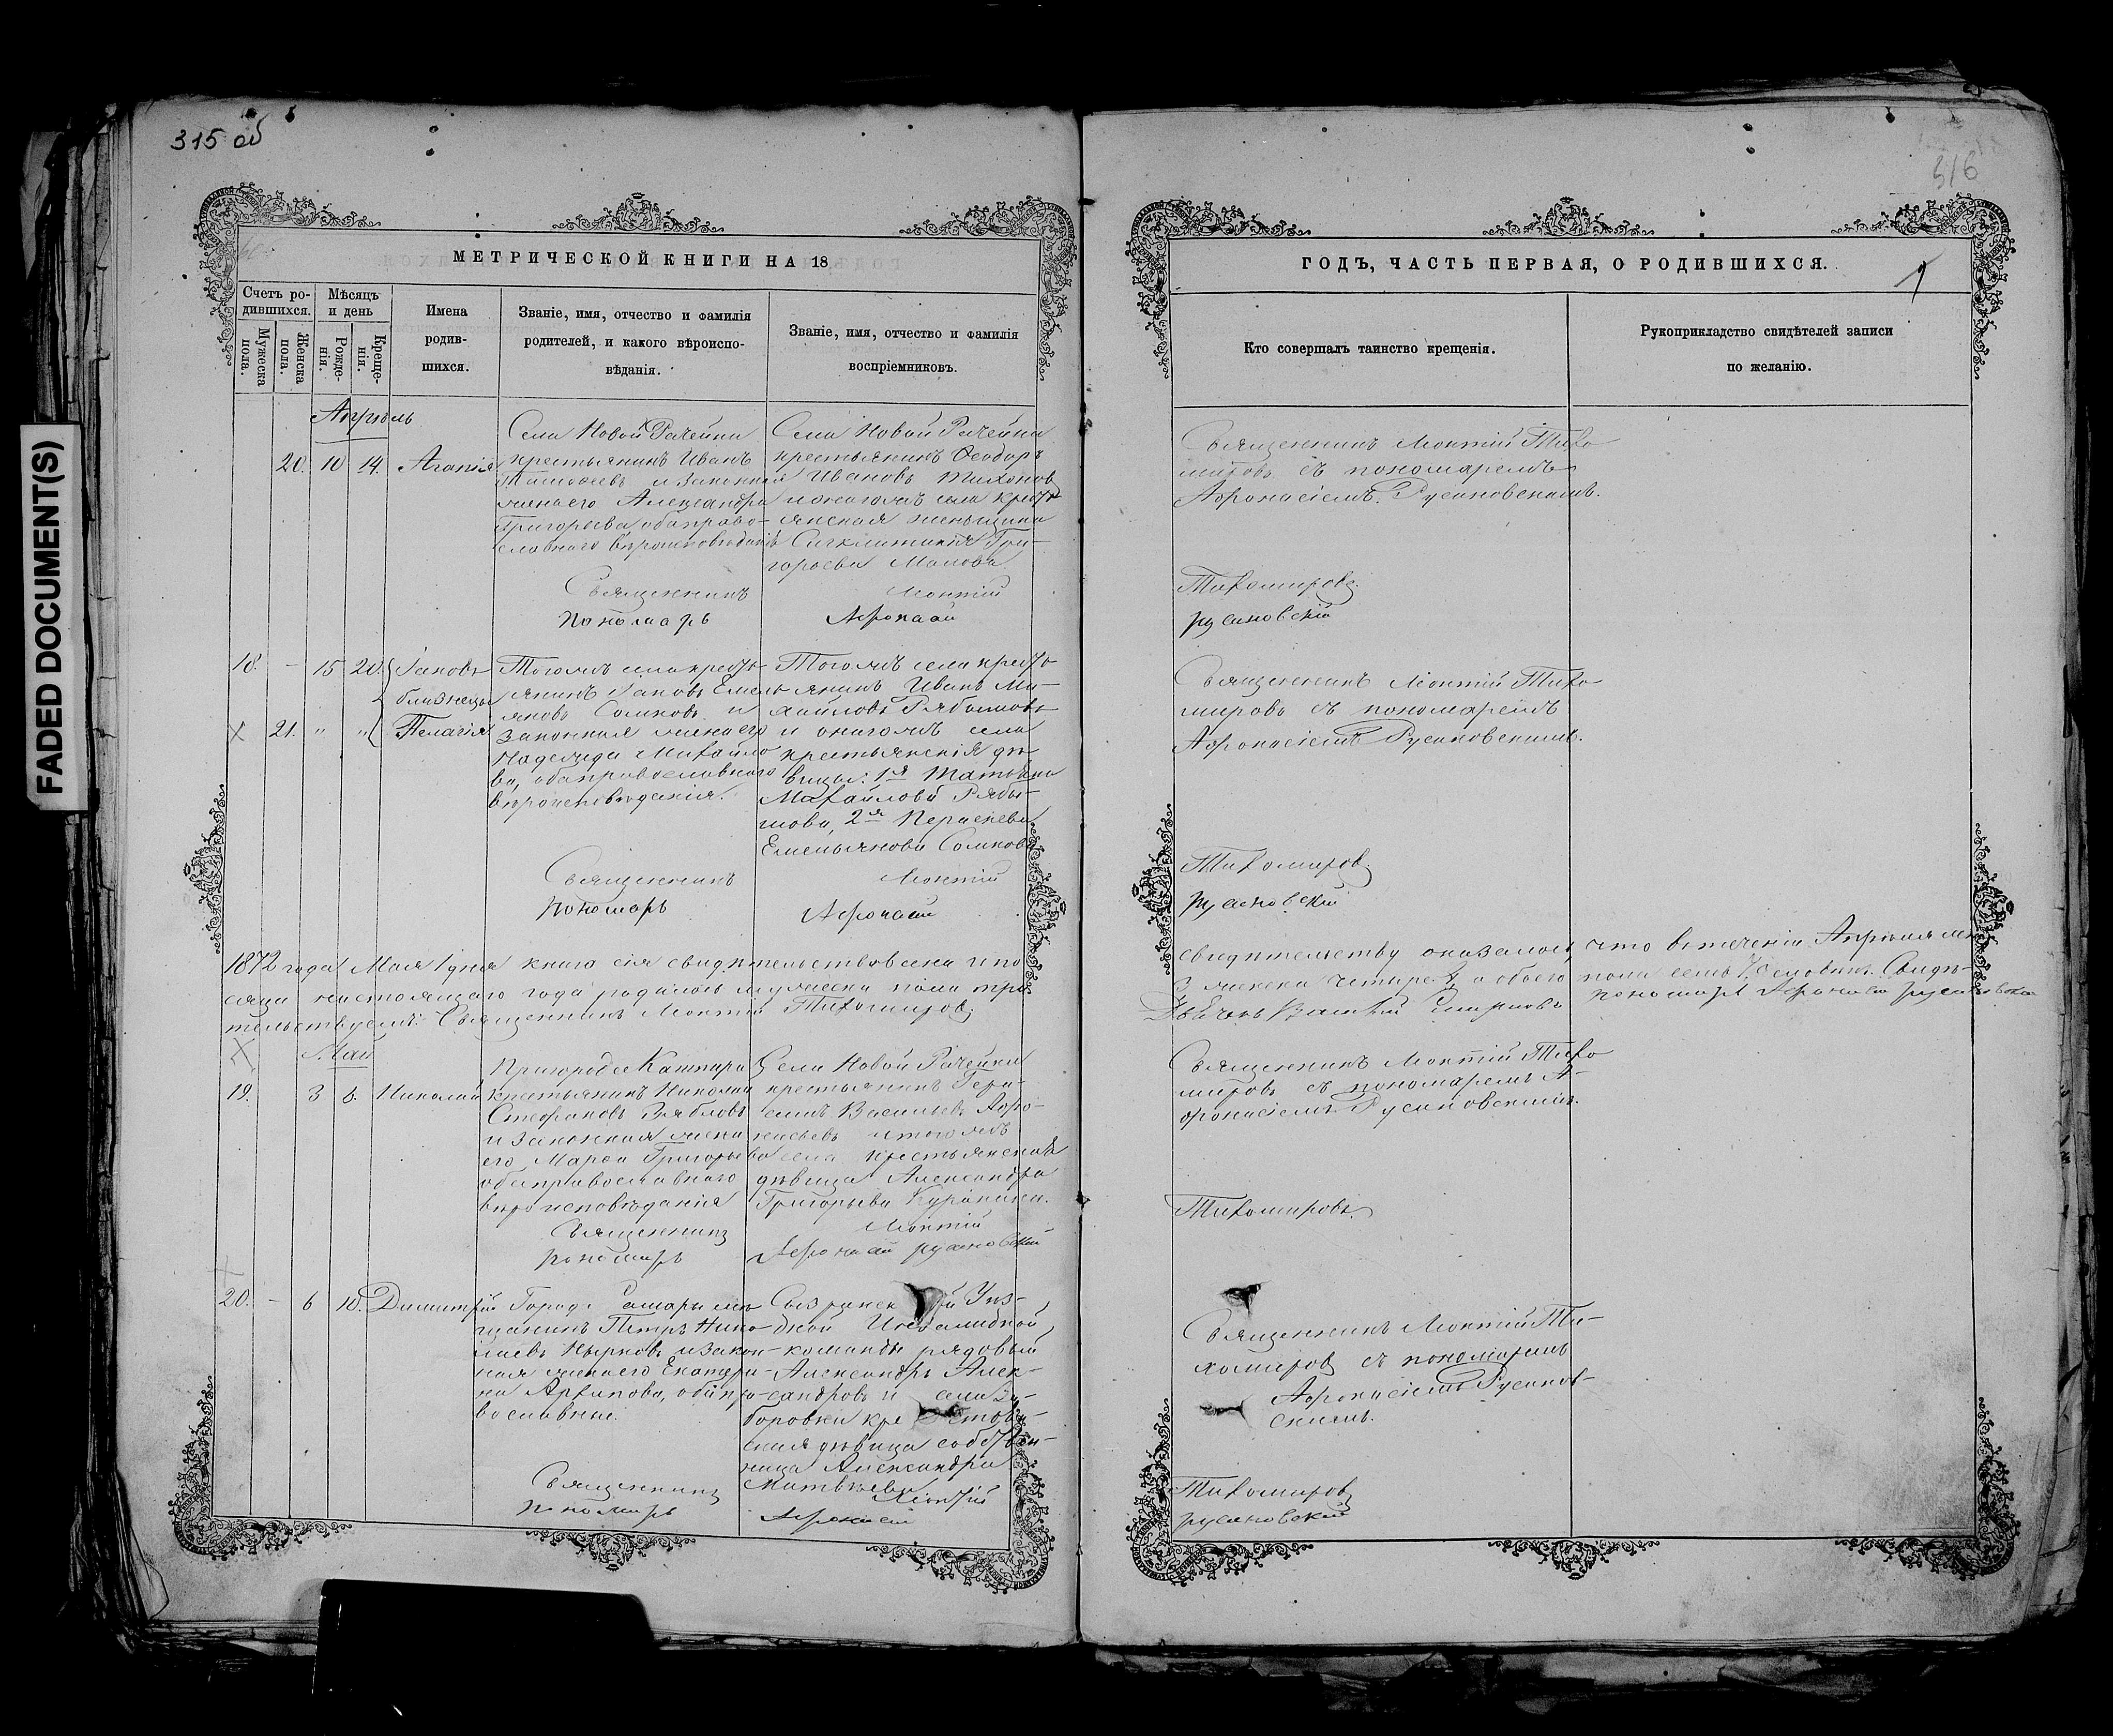 FADED DOCUMENT(S)
315 об
МЕТРИЧЕСКОЙ КНИГИ НА 18
Счетъ ро-
дившихся.
Мужеска
пола.
Женска
пола.
Мѣсяцъ
и день
Рожде-
нія.
Креще-
нія.
Имена
родив-
шихся.
Званіе, имя, отчество и фамилія
родителей, и какого вѣроиспо-
вѣданія.
Званіе, имя, отчество и фамилія
воспріемниковъ.
Апрѣль
20. 10 14. Агапія
Села Новой Рачейки
крестьянинъ Иванъ
и законная
жена его Александра
Григорьева оба право-
славнаго вѣроисповѣданія
Села Новой Рачейки
крестьянинъ Ѳеодоръ
Ивановъ Тихоновъ
и тогожъ села кресть-
янская женщина
Синклитикія Гри-
горьева
Священникъ Леонтій
пономарь Афонасій
18. - 15 20. Іаковъ
близнецы
21. " " Пелагія
Тогожъ села кресть-
янинъ Іаковъ Емель-
яновъ Сомковъ и
законная жена его
Надежда Михайло-
ва, оба православнаго
вѣроисповѣданія.
Тогожъ села кресть-
янинъ Иванъ Ми-
хайловъ Рябышовъ
и онагожъ села
крестьянскія дѣ-
вицы: 1я Татьяна
Михайлова Рябы-
шова, 2я
Емельянова Сомкова
Священникъ Леонтій
пономарь Афонасій
1872 года Мая 1 дня книга сія свидѣтельствована и по
сяца настоящаго года родилось мужеска пола три
тельствуемъ: Священникъ Леонтій Тихомировъ.
Май
19. 3 6. Николай
Пригорода Кашпира
крестьянинъ Николай
Стефановъ Зябловъ
и законная жена
его Марфа Григорьева
оба православнаго
вѣроисповѣданія
Села Новой Рачейки
крестьянинъ Гера-
симъ Васильевъ Афо-
насьевъ и тогожъ
села крестьянская
дѣвица Александра
Григорьева
Священникъ Леонтій
пономарь Афонасій Русановскій
20. - 6 10. Димитрій
Города Самары мѣ-
щанинъ Петръ Нико-
лаевъ и закон-
ная жена его Екатери-
на Архипова, оба пра-
вославные.
Сызранск й Уѣз-
дной Инвалидной
команды рядовый
Александръ Алек-
сандровъ и села За-
боровки
дѣвица собствен-
ница Александра
Матвѣева
Священникъ Леонтій
пономарь Афонасій
316
ГОДЪ, ЧАСТЬ ПЕРВАЯ, О РОДИВШИХСЯ.
Кто совершалъ таинство крещенія.
Рукоприкладство свидѣтелей записи
по желанію.
Священникъ Леонтій Тихо
мировъ съ пономаремъ
Афонасіемъ Русановскимъ.
Тихомировъ.
русановскій
Священникъ Леонтій Тихо
мировъ съ пономаремъ
Афонасіемъ Русановскимъ.
Тихомировъ.
русановскій
свидѣтельству оказалось, что втеченіи Апрѣля мѣ-
3, женска четыре 4, а обоего пола семь 7, человѣкъ. Свидѣ-
пономарь Афонасій русановскій
Священникъ Леонтій Тихо
мировъ съ пономаремъ А-
фонасіемъ Русановскимъ.
Тихомировъ.
Священникъ Леонтій Ти-
хомировъ съ пономаремъ
Афонасіемъ Русанов-
скимъ.
Тихомировъ
русановскій